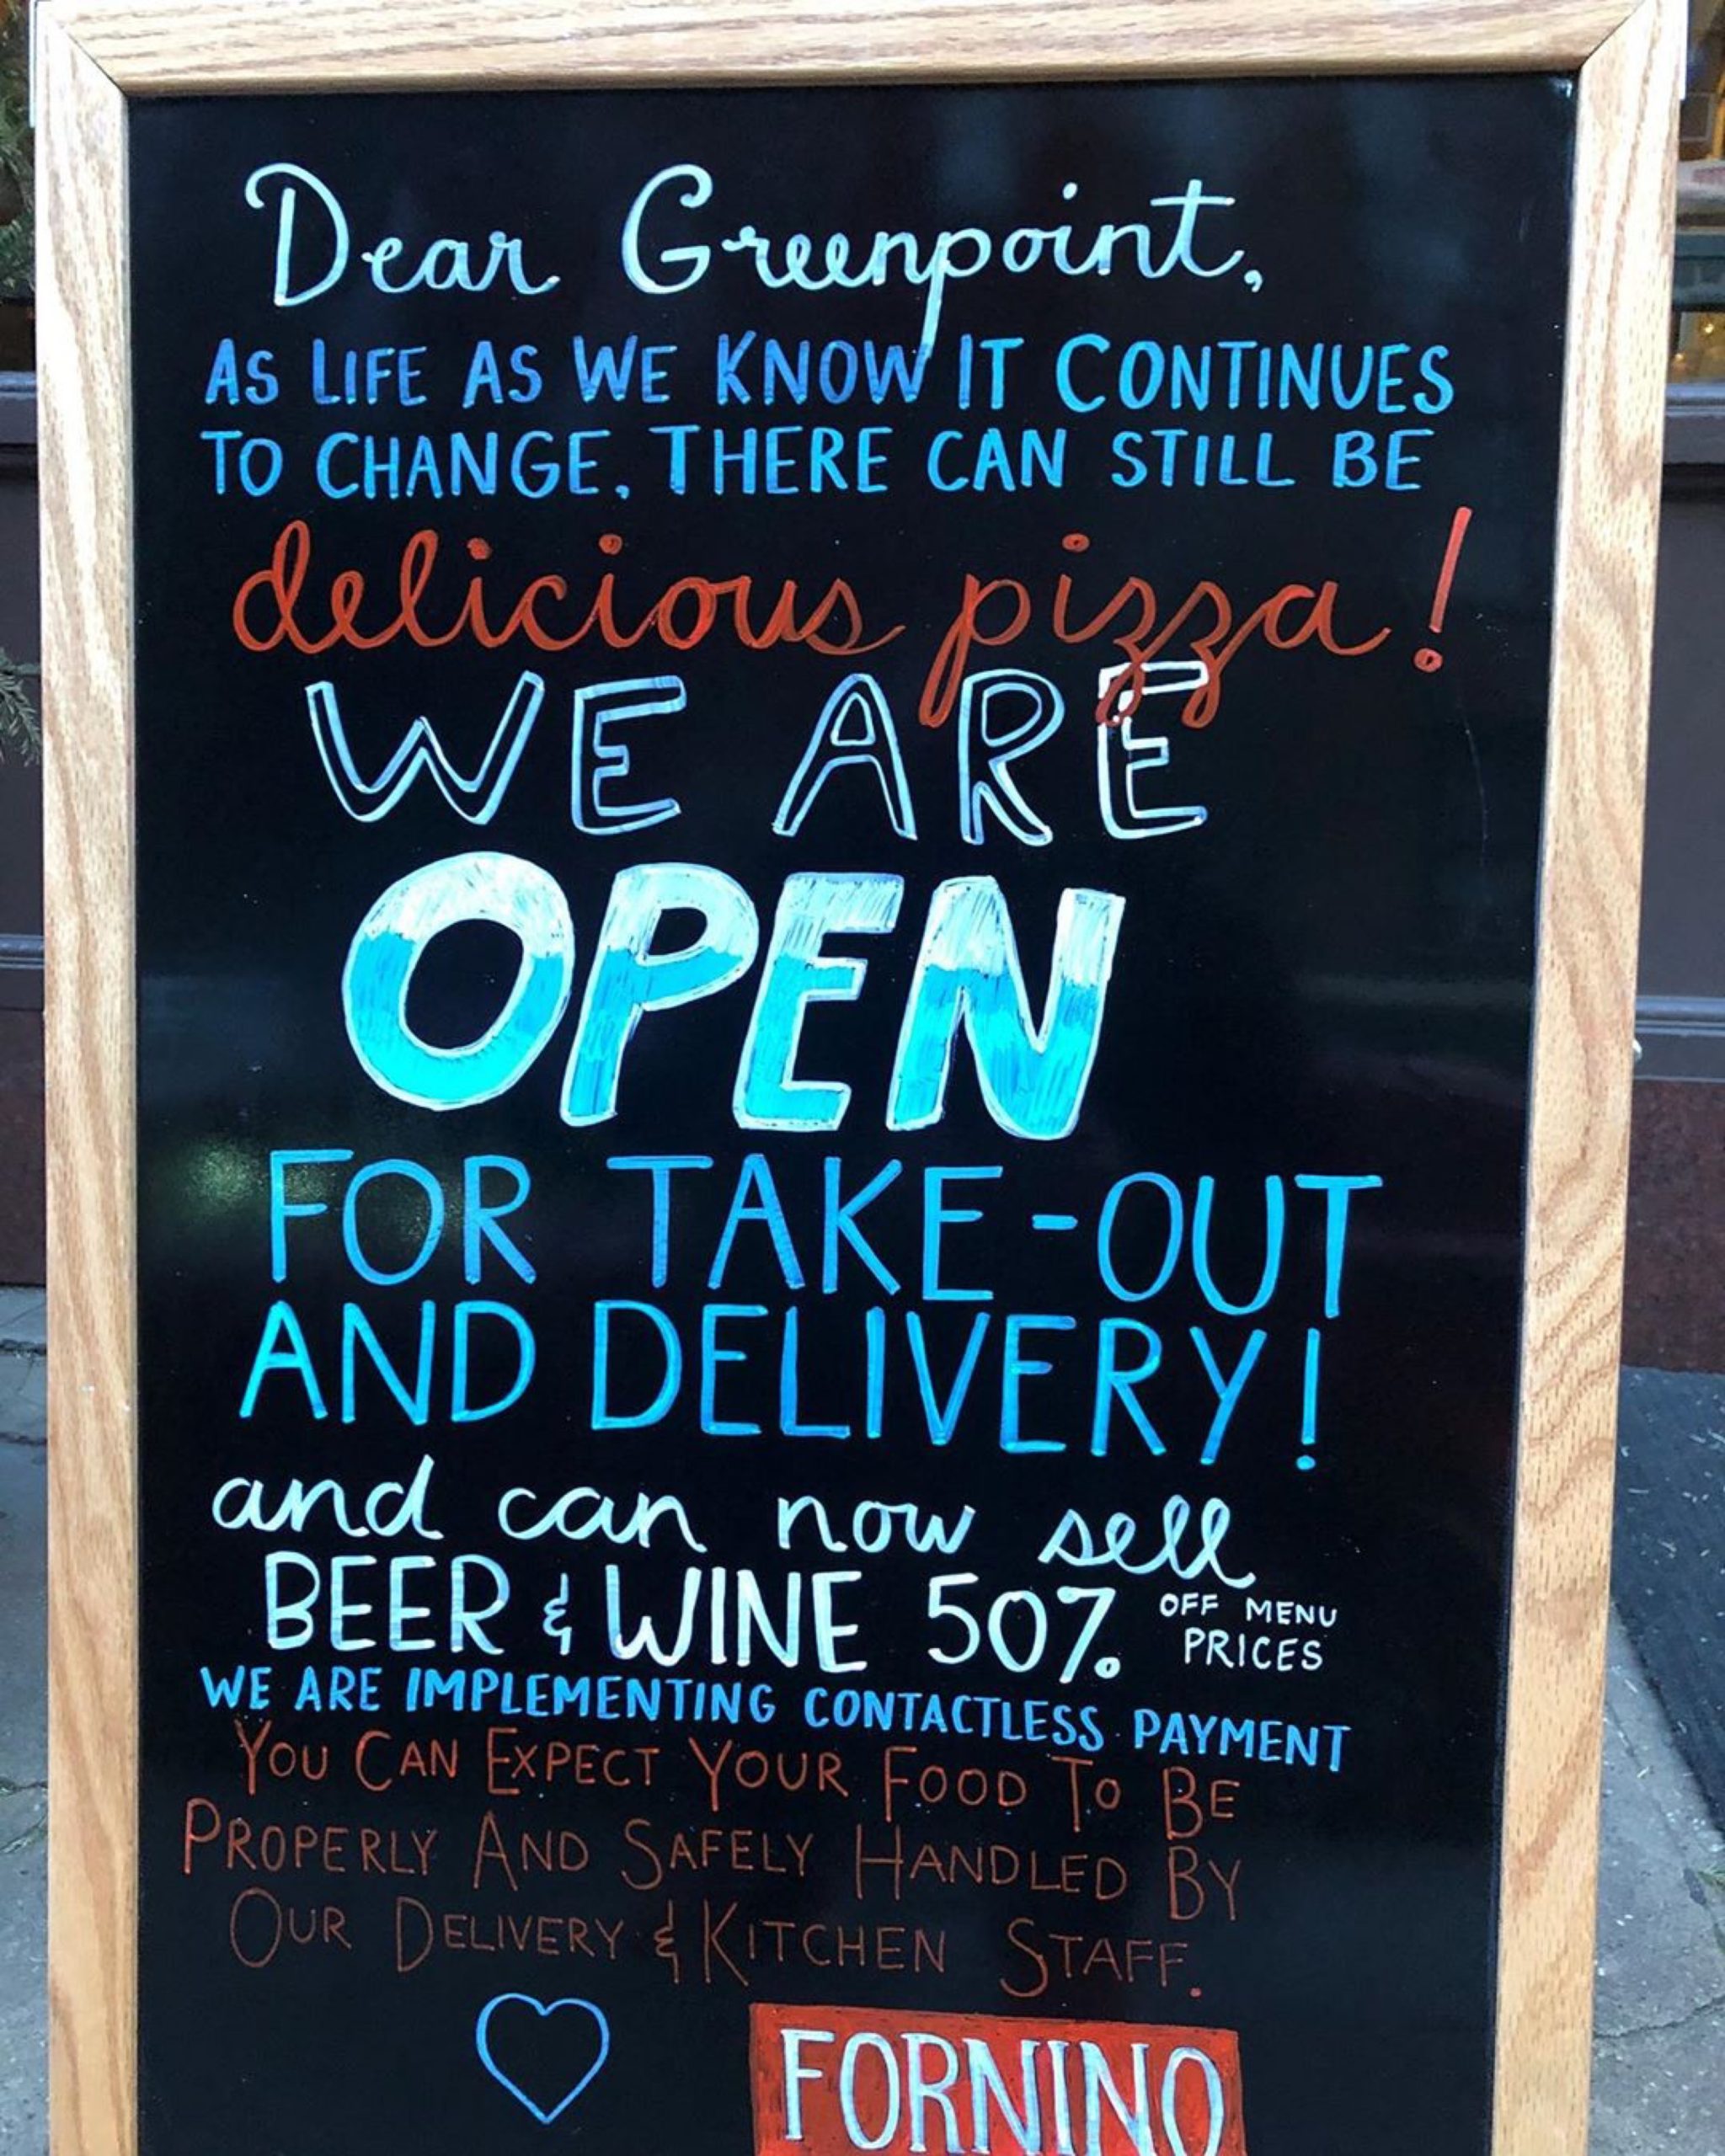 Dear Greenpoint,
AS LIFE AS WE KNOW IT CONTINUES
TO CHANGE, THERE CAN STILL BE
delicious pizza!
WE ARE
OPEN
FOR TAKE-OUT
AND DELIVERY!
and can now sell
BEER & WINE 50% OFF MENU PRICES
WE ARE IMPLEMENTING CONTACTLESS PAYMENT
YOU CAN EXPECT YOUR FOOD TO BE
PROPERLY AND SAFELY HANDLED BY
OUR DELIVERY & KITCHEN STAFF.
FORNINO